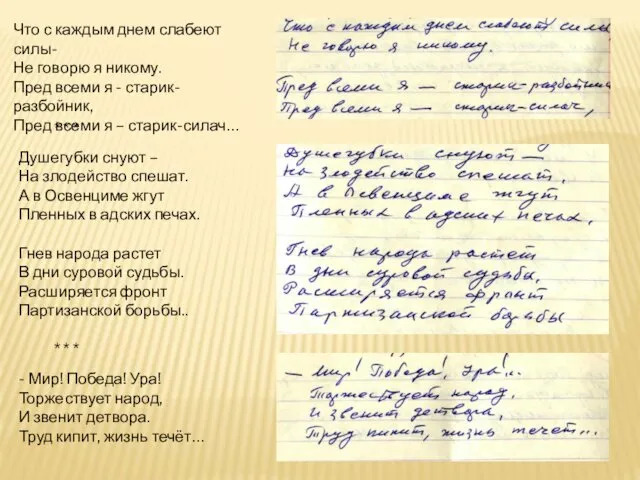 Что с каждым днем слабеют
силы-
Не говорю я никому.
Пред всеми я - старик-
разбойник,
Пред всеми я – старик-силач…
***
Душегубки снуют –
На злодейство спешат.
А в Освенциме жгут
Пленных в адских печах.
Гнев народа растет
В дни суровой судьбы.
Расширяется фронт
Партизанской борьбы..
***
- Мир! Победа! Ура!
Торжествует народ,
И звенит детвора.
Труд кипит, жизнь течёт…
Что с каждым днем слабеют силы
Не говорю я никому.
Пред всеми я — старик-разбойник
Пред всеми я — старик-силач,
Душегубки снуют —
На злодейство спешат.
А в Освенциме жгут
Пленных в адских печах.
Гнев народа растет
В дни суровой судьбы.
Расширяется фронт
Партизанской борьбы
— Мир! Победа! Ура!..
Торжествует народ,
И звенит детвора,
Труд кипит, жизнь течет...